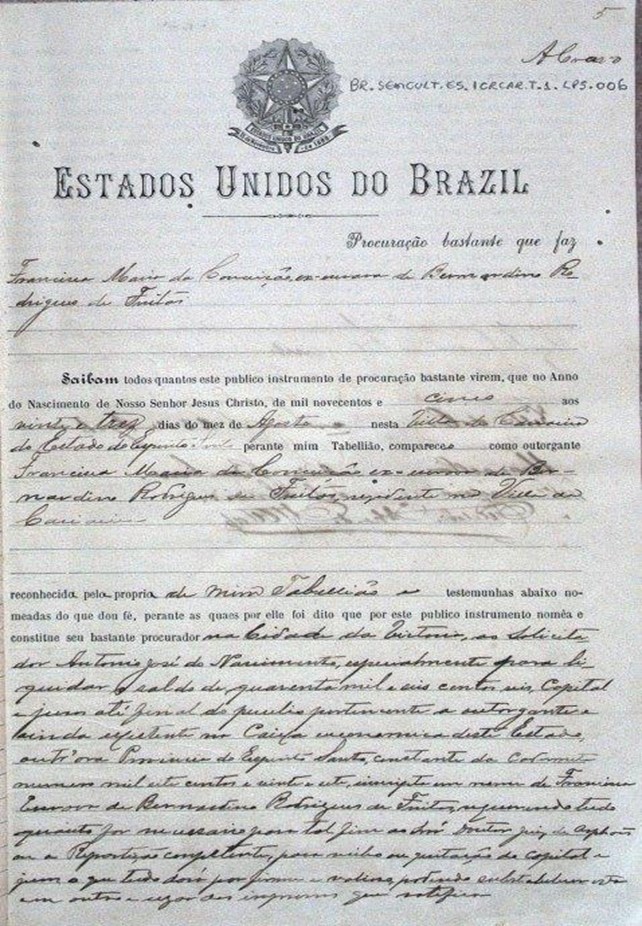 5
BR.SEMCULT.ES.ICRCAR.T.1.LPS.006
ESTADOS UNIDOS DO BRAZIL
15 de Novembro de 1889
ESTADOS UNIDOS DO BRAZIL
Procuração bastante que faz
Francisca Maria da Conceição ex-escrava de Bernardino Ro-
drigues de Freitas
Saibam todos quantos este publico instrumento de procuração bastante virem, que no Anno
do Nascimento de Nosso Senhor Jesus Christo, de mil novecentos e cinco aos
vinte e trez dias do mez de Agosto nesta Villa de Cariacica
do Estado do Espirito Santo perante mim Tabellião, compareceo como outorgante
Francisca Maria da Conceição ex-escrava de Ber-
nardino Rodrigues de Freitas, residente na Villa de
Cariacica
reconhecida pela propria de mim Tabellião e testemunhas abaixo no-
meadas do que dou fé, perante as quaes por elle foi dito que por este publico instrumento nomêa e
constitue seu bastante procurador na Cidade da Victoria, ao Solicita
dor Antonio José do Nascimento, especialmente para li-
quidar o saldo de quarenta mil e seis centos reis, Capital
e juros até final do peculio pertencente a outorgante e
ainda existente na Caixa economica deste Estado,
outr'ora Provincia do Espirito Santo, constante da caderneta
numero mil sete centos e vinte e sete, inscripta em nome de Francisca
Escrava de Bernardino Rodrigues de Freitas, requerendo tudo
quanto for necessario para tal fim ao Snr Doutor Juiz de Orphãos
ou a Repartição competente, para recebe ou quitação do capital e
juros o que tudo dará por firme e valioso, podendo substabelecer esta
em outro e usar dos impressos que ratifica